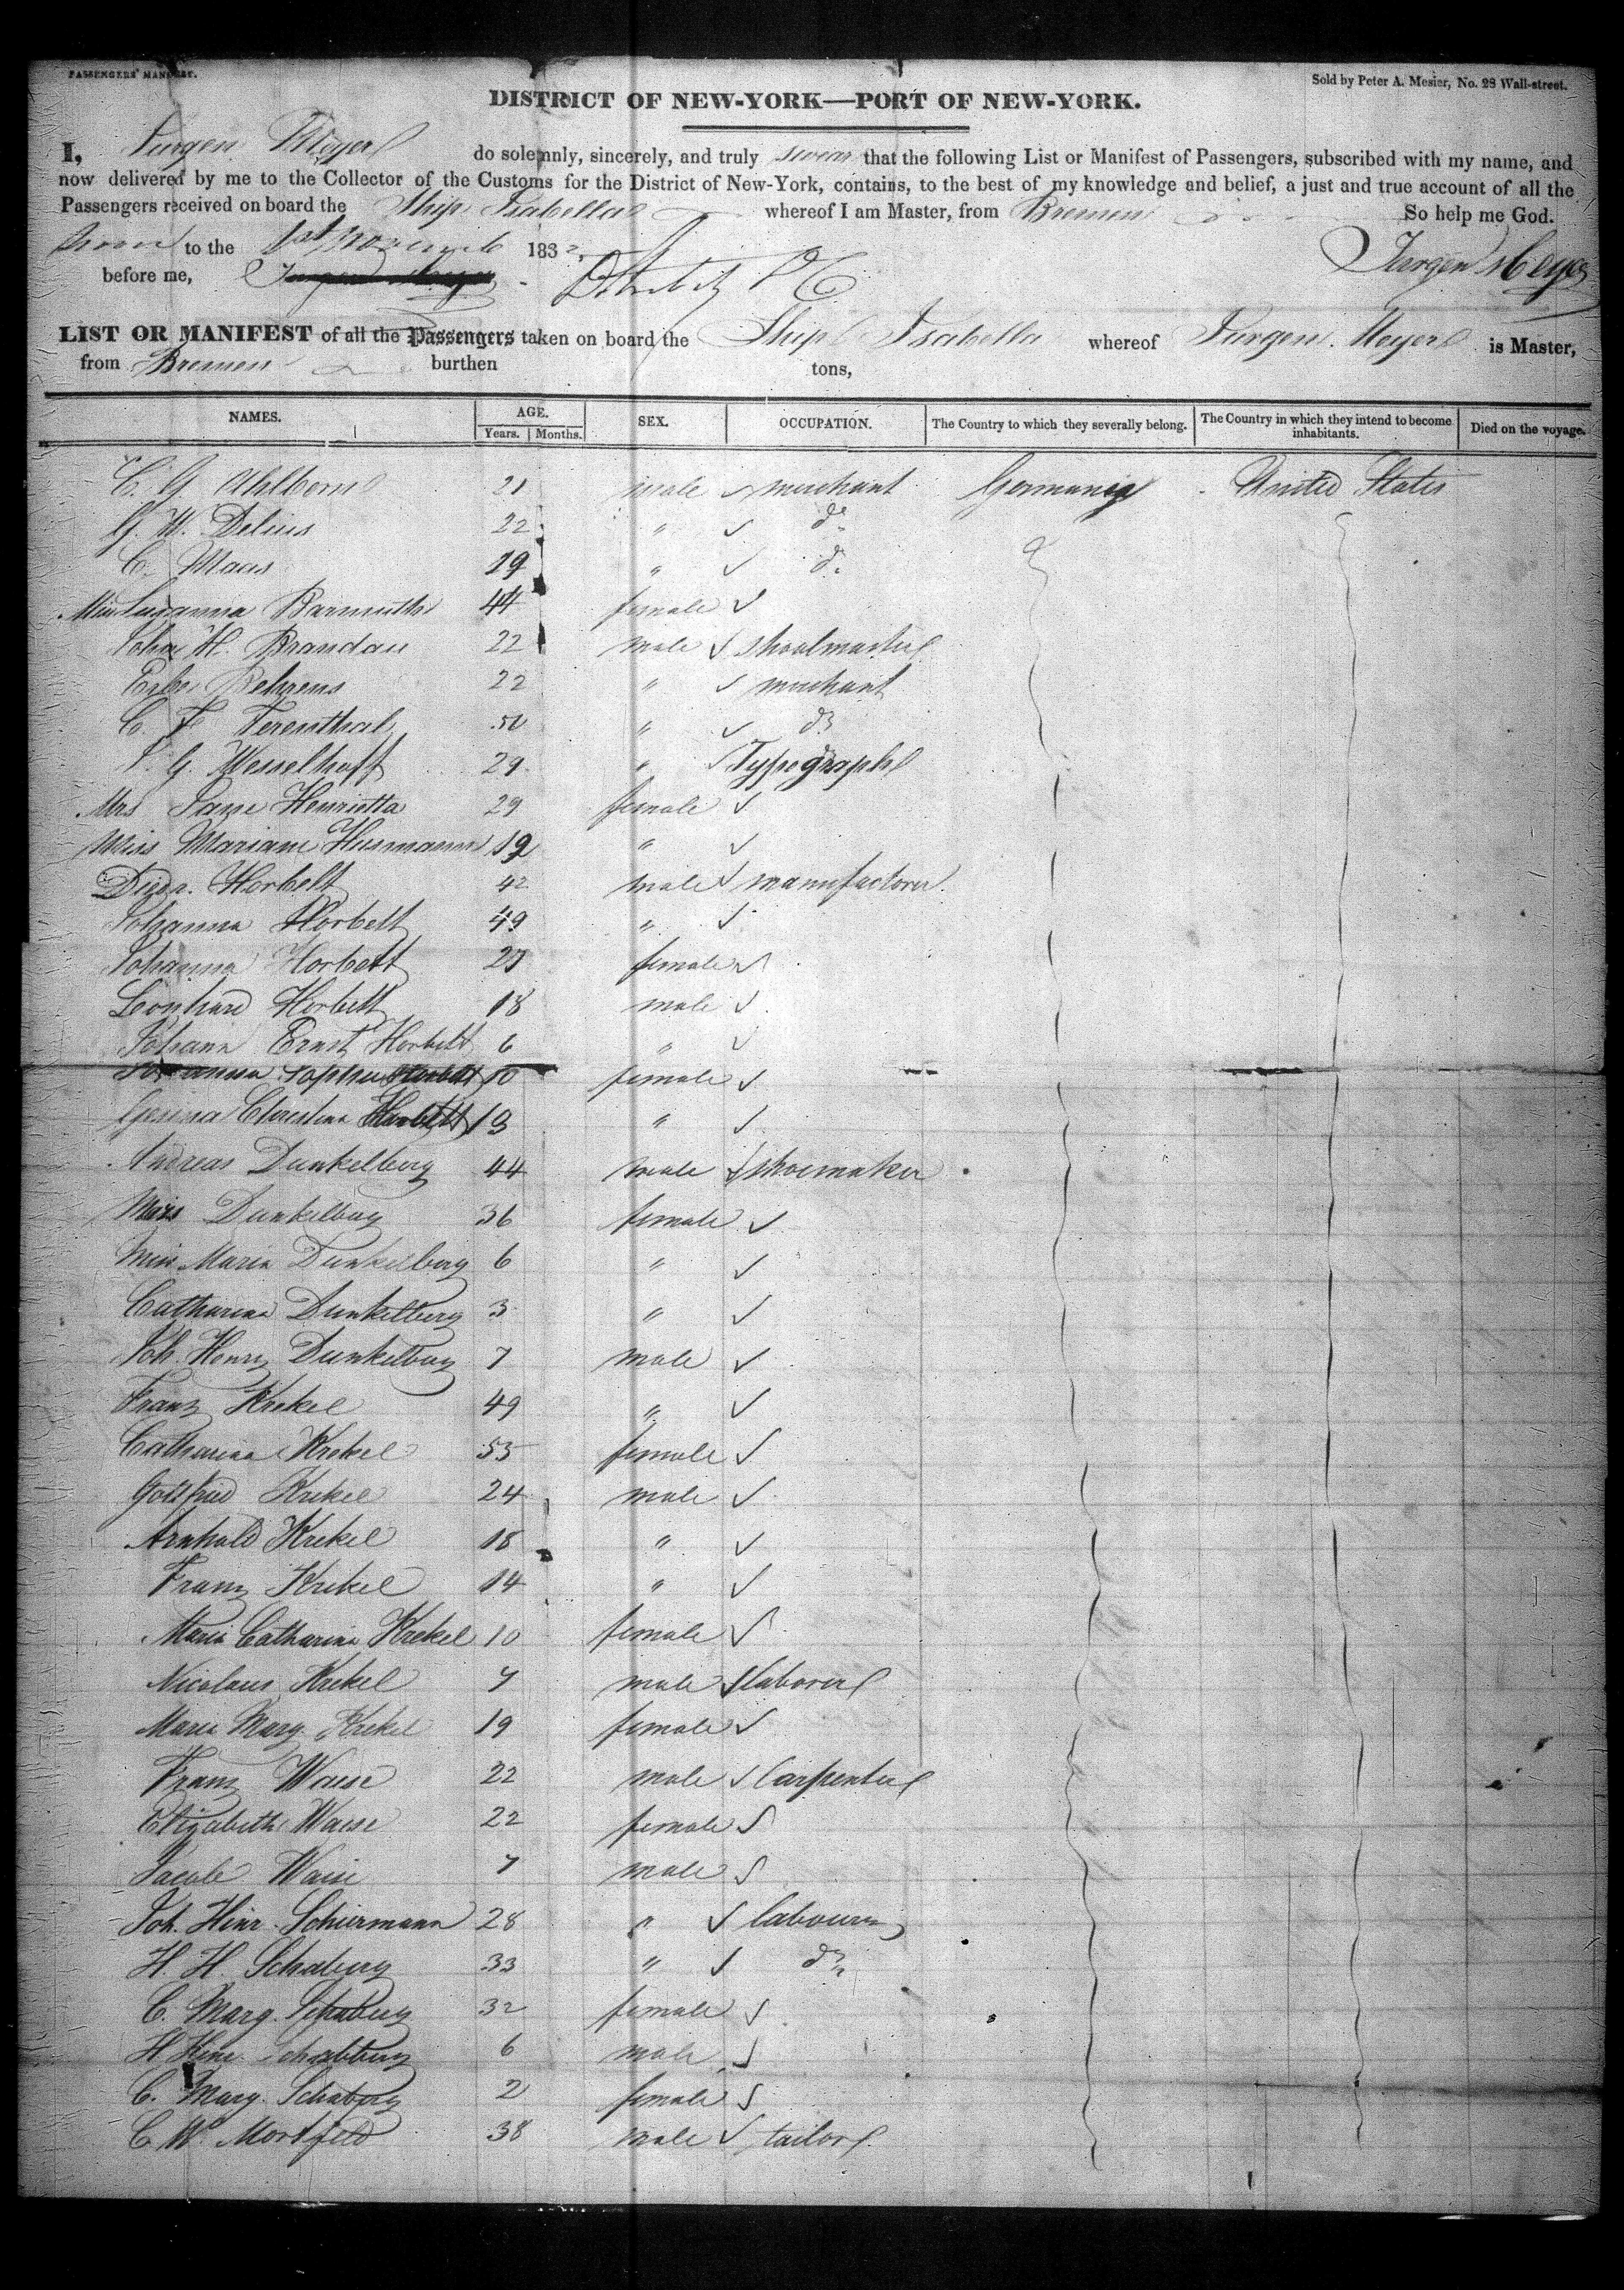 PASSENGERS' MANIFEST.
Sold by Peter A. Mesier, No. 28 Wall-street.
DISTRICT OF NEW-YORK—PORT OF NEW-YORK.
I, Jurgen Meyer do solemnly, sincerely, and truly swear that the following List or Manifest of Passengers, subscribed with my name, and
now delivered by me to the Collector of the Customs for the District of New-York, contains, to the best of my knowledge and belief, a just and true account of all the
Passengers received on board the Ship Isabella whereof I am Master, from Bremen So help me God.
Sworn to the 1st Novemb 1832,
before me, Jurgen Meyer
LIST OR MANIFEST of all the Passengers taken on board the Ship Isabella whereof Jurgen Meyer is Master,
from Bremen burthen tons,
NAMES. AGE. Years. Months. SEX. OCCUPATION. The Country to which they severally belong. The Country in which they intend to become inhabitants. Died on the voyage.
C. G. Ahlborn 21 male merchant Germania United States
G. W. Delius 22 " do
C. Maas 19 " do
Miss Susanna Barmuth 44 female
John H. Brandau 22 male shoolmaster
Behrens 22 " merchant
C. F. Ferenthal " do
J. G. Wesselhoft 29 " Typograph
Mrs Jane Henrietta 29 female
Miss Mariane Husmann 19 "
Horbelt 42 male manufactorer
Johanna Horbelt 49 "
Johanna Horbelt 27 female
Leonhard Horbelt 18 male
Johann Ernst Horbelt 6 "
Johanna Sophia Horbelt 10 female
Gesina Christina Horbelt 13 "
Andreas Dunkelberg 44 male shoemaker
Mrs Dunkelberg 36 female
Miss Maria Dunkelberg 6 "
Catharina Dunkelberg 3 "
Joh. Henry Dunkelberg 7 male
Franz Krekel 49 "
Catharina Krekel 55 female
Gottfried Krekel 24 male
Arnhold Krekel 18 "
Franz Krekel 14 "
Maria Catharina Krekel 10 female
Nicolaus Krekel 7 male laborer
Maria Marg. Krekel 19 female
Franz Waise 22 male Carpenter
Elizabeth Waise 22 female
Jacob Waise 7 male
Joh. Hinr. Schiermann 28 " labourer
H. H. Schaberg 33 " do
C. Marg. Schaberg 32 female
H Hinr. Schaberg 6 male
C. Marg. Schaberg 2 female
C. W. Mortfeld 38 male tailor